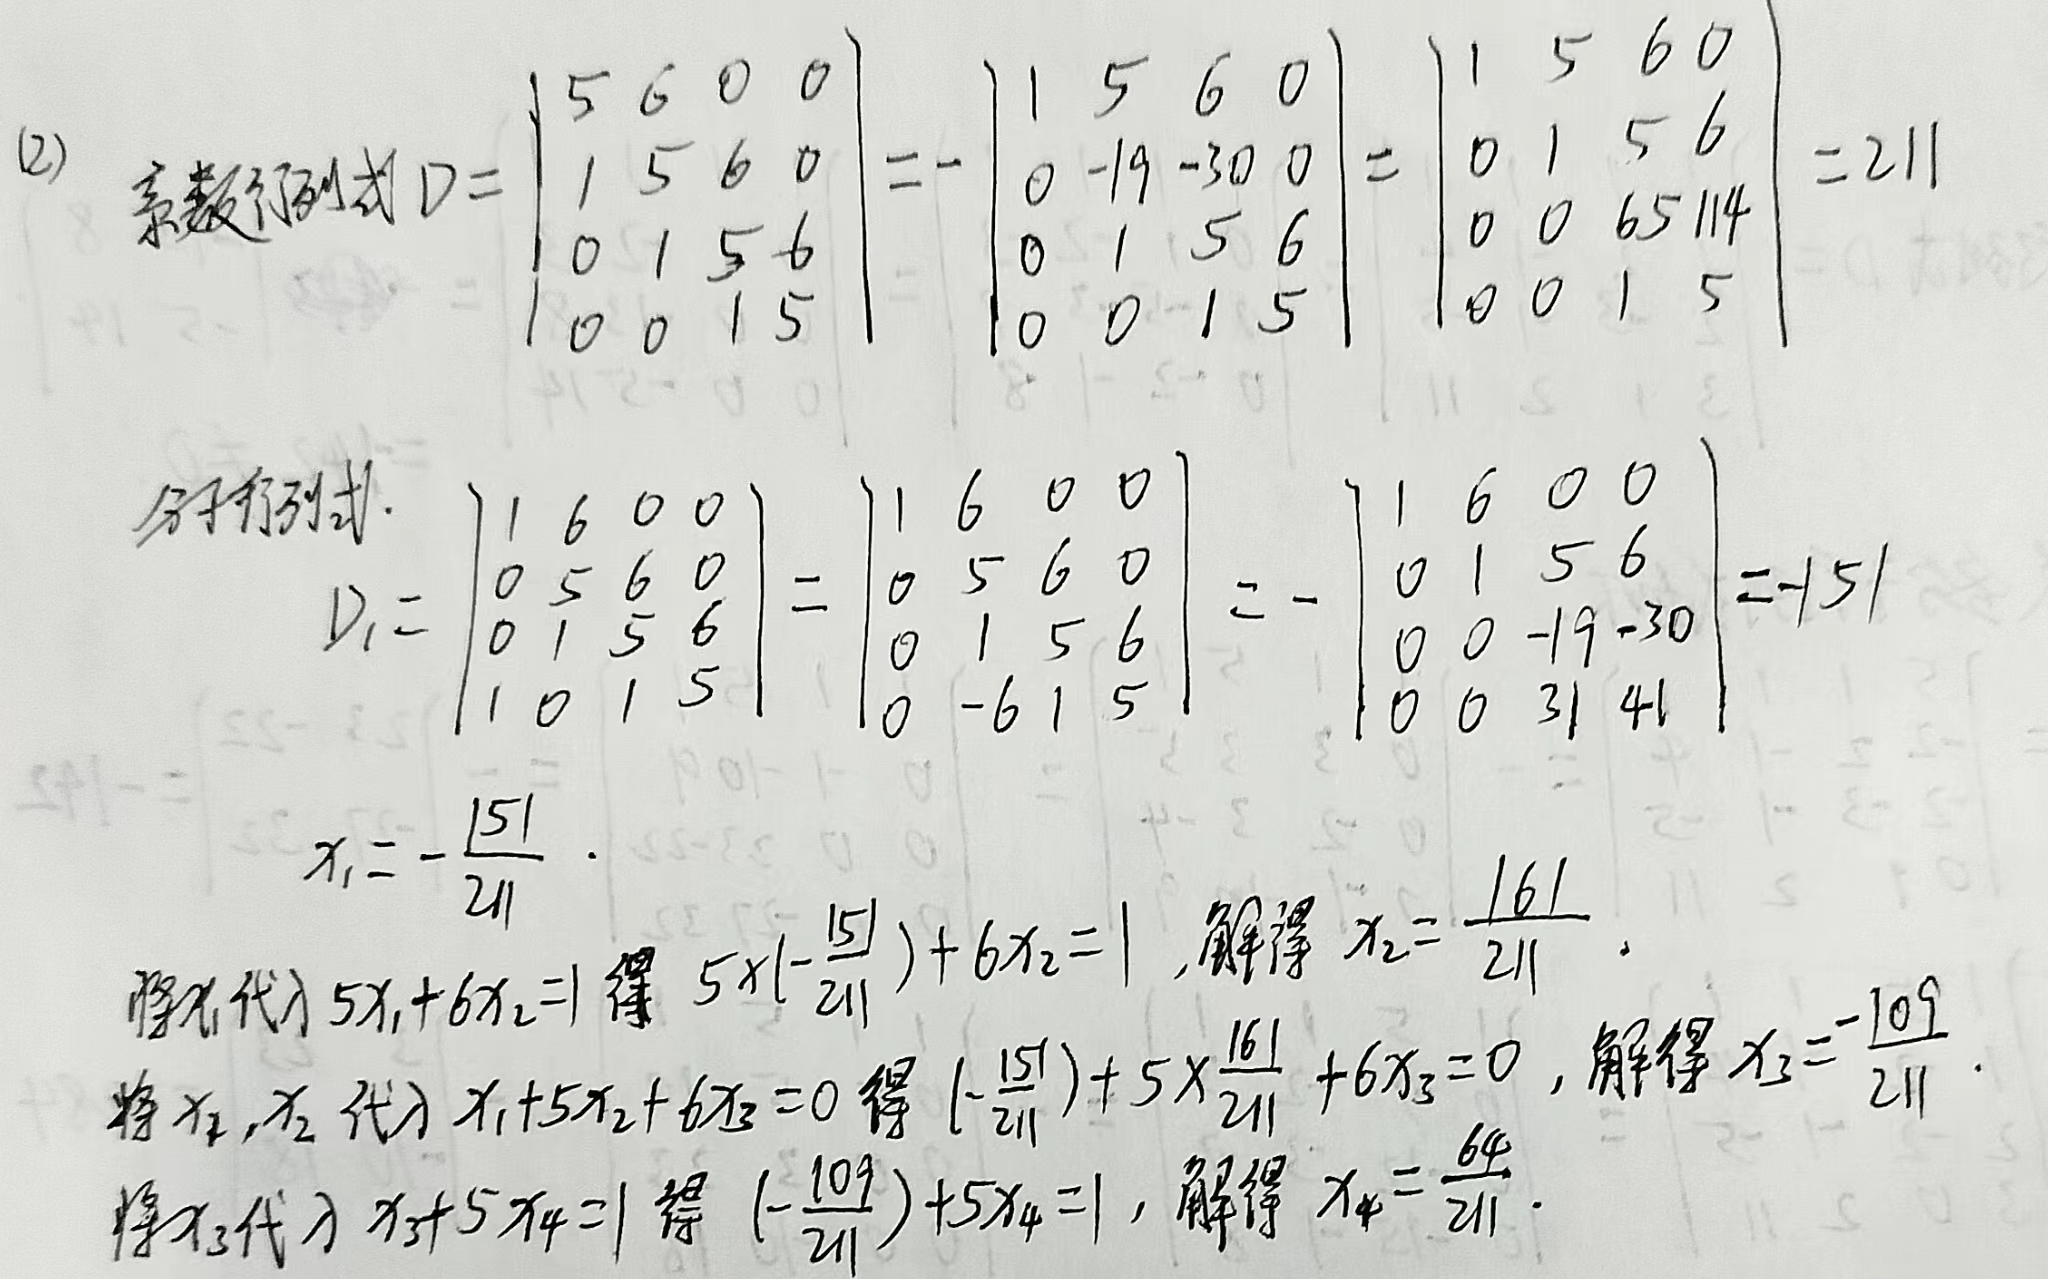 (2) 系数行列式 D = | 5 6 0 0 | = - | 1 5 6 0 | = | 1 5 6 0 | = 211
| 1 5 6 0 | | 0 -19 -30 0 | | 0 1 5 6 |
| 0 1 5 6 | | 0 1 5 6 | | 0 0 65 114 |
| 0 0 1 5 | | 0 0 1 5 | | 0 0 1 5 |
分子行列式.
D₁ = | 1 6 0 0 | = | 1 6 0 0 | = - | 1 6 0 0 | = -151
| 0 5 6 0 | | 0 5 6 0 | | 0 1 5 6 |
| 0 1 5 6 | | 0 1 5 6 | | 0 0 -19 -30 |
| 1 0 1 5 | | 0 -6 1 5 | | 0 0 31 41 |
x₁ = -151/211 .
将x₁代入 5x₁+6x₂=1 得 5×(-151/211)+6x₂=1 ,解得 x₂=161/211 .
将x₁,x₂代入 x₁+5x₂+6x₃=0 得 (-151/211)+5×161/211+6x₃=0 ,解得 x₃=-109/211 .
将x₃代入 x₃+5x₄=1 得 (-109/211)+5x₄=1 ,解得 x₄=64/211 .